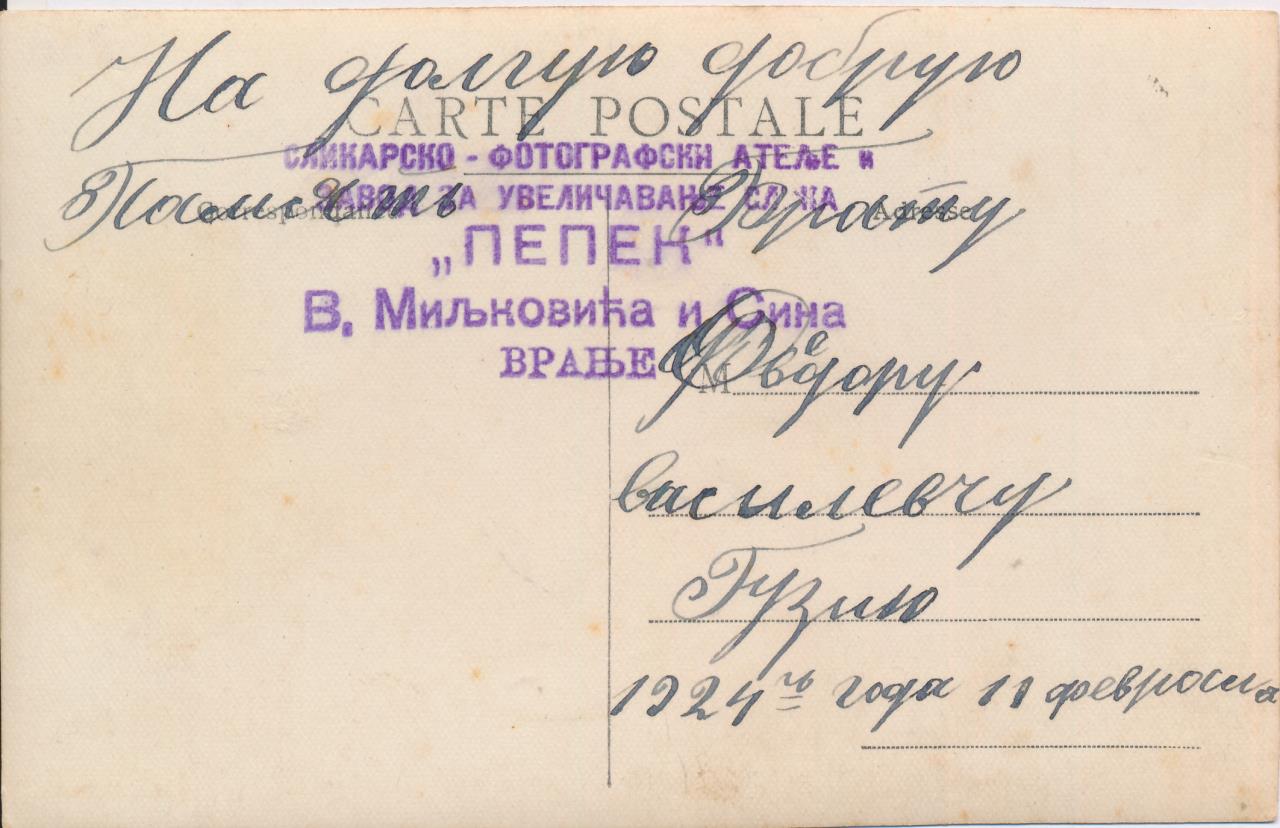 На долгую добрую
CARTE POSTALE
СЛИКАРСКО - ФОТОГРАФСКИ АТЕЉЕ и
ЗАВОД ЗА УВЕЛИЧАВАЊЕ СЛИКА
Память Брату
Correspondance Adresse
„ПЕПЕК“
В. Миљковића и Сина
ВРАЊЕ
M
Феодору
василевчу
Гузию
1924 го года 11 феврала